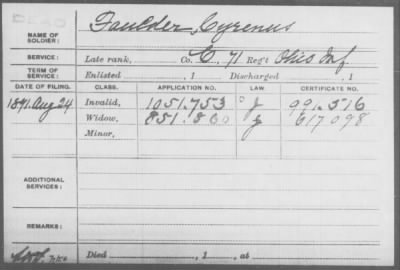 DEAD
NAME OF SOLDIER: Faulder, Cyrenus
SERVICE: Late rank, Co. C. 71 Reg't Ohio Inf
TERM OF SERVICE: Enlisted , 1 Discharged , 1
DATE OF FILING. CLASS. APPLICATION NO. LAW. CERTIFICATE NO.
1891. Aug 24 Invalid, 1051.753 J 991.516
Widow, 851.860 J 617098
Minor,
ADDITIONAL SERVICES:
REMARKS:
Died , 1 , at